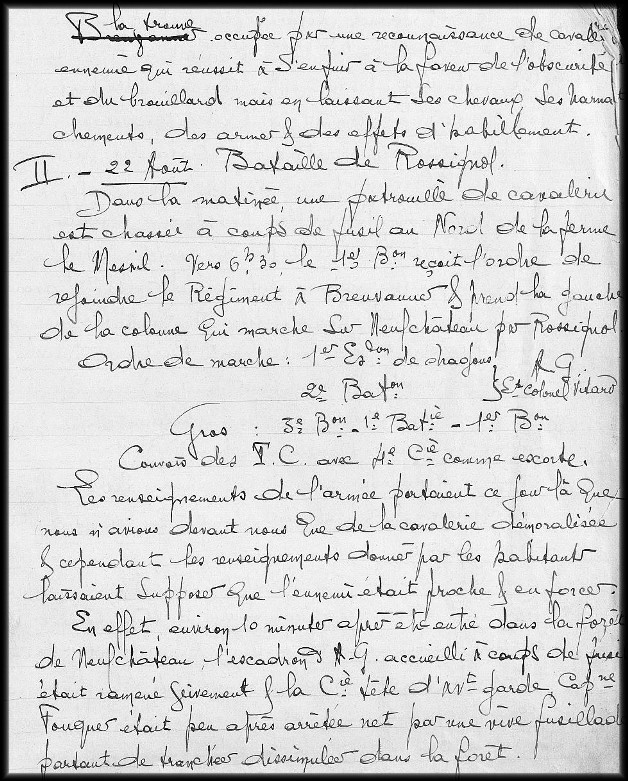 la trouve
Breuvanne occupée par une reconnaissance de cavalerie
ennemie qui réussit à s'enfuir à la faveur de l'obscurité
et du brouillard mais en laissant des chevaux, des harna
chements, des armes & des effets d'habillement.
II. - 22 Août. Bataille de Rossignol.
Dans la matinée, une patrouille de cavalerie
est chassée à coups de fusil au Nord de la ferme
le Mesnil. Vers 6h30, le 1er Bon reçoit l'ordre de
rejoindre le Régiment à Breuvanne & prend la gauche
de la colonne qui marche sur Neufchâteau par Rossignol.
Ordre de marche : 1er Esdon de dragons } A.G.
2e Baton } Lt colonel Vitard
Gros : 3e Bon - 1e Batie - 1er Bon
Convois des T.C. avec 4e Cie comme escorte.
Les renseignements de l'armée portaient ce jour là que
nous n'avions devant nous que de la cavalerie démoralisée
& cependant les renseignements donnés par les habitants
laissaient supposer que l'ennemi était proche & en forces.
En effet, environ 10 minutes après être entré dans la forêt
de Neufchâteau l'escadron d'A.G. accueilli à coups de fusil
était ramené grièvement & la Cie tête d'Avt garde, Capne
Fouquer était peu après arrêtée net par une vive fusillad
partant de tranchées dissimulées dans la forêt.